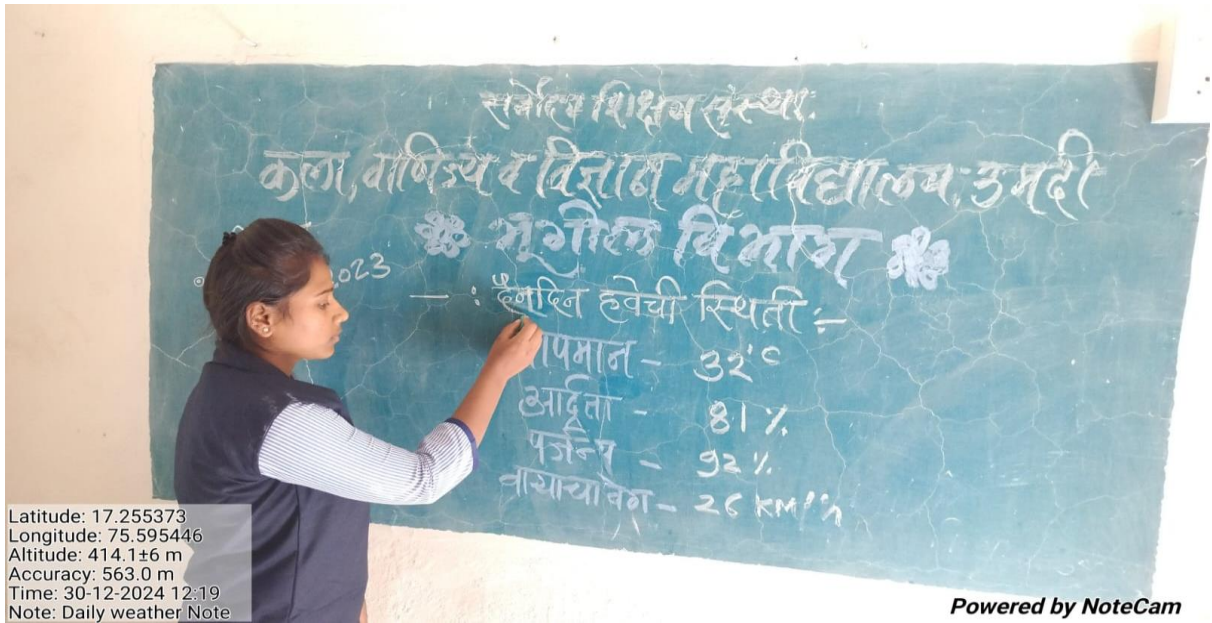 सर्वोदय शिक्षण संस्था:
कला, वाणिज्य व विज्ञान महाविद्यालय: उमदी
भूगोल विभाग
2023
— : दैनंदिन हवेची स्थिती :-
तापमान - 32°C
आर्द्रता - 81 %
पर्जन्य - 92 %
वाऱ्याचा वेग - 26 KM/h
Latitude: 17.255373
Longitude: 75.595446
Altitude: 414.1±6 m
Accuracy: 563.0 m
Time: 30-12-2024 12:19
Note: Daily weather Note
Powered by NoteCam